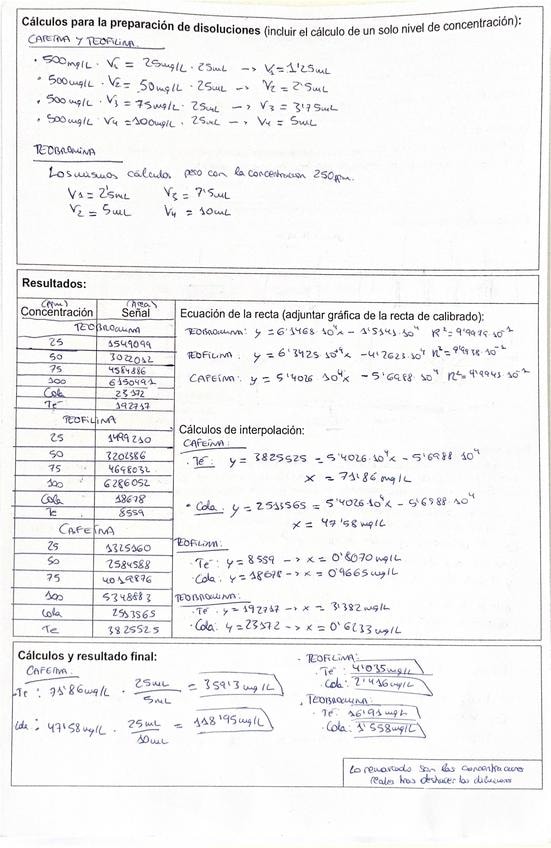 Cálculos para la preparación de disoluciones (incluir el cálculo de un solo nivel de concentración):
CAFEÍNA Y TEOFILINA.
· 500mg/L · V₁ = 25mg/L · 25mL --> V₁=1'25mL
· 500mg/L · V₂ = 50mg/L · 25mL --> V₂ = 2'5mL
· 500mg/L · V₃ = 75mg/L · 25mL --> V₃ = 3'75mL
· 500mg/L V₄ = 100mg/L · 25mL --> V₄ = 5mL
TEOBROMINA
Los mismos cálculos pero con la concentracion 250ppm.
V1 = 2'5mL V₃ = 7'5mL
V₂ = 5mL V₄ = 10mL
Resultados:
(ppm) (Area)
Concentración Señal
TEOBROMINA
25 1549099
50 3022012
75 4584886
100 6150491
Cola 23172
Té 192717
TEOFILINA
25 1499210
50 3202386
75 4698032
100 6286052
Cola 18678
Te 8559
CAFEÍNA
25 1325160
50 2584588
75 4019876
100 5348883
Cola 2513565
Te 3825525
Ecuación de la recta (adjuntar gráfica de la recta de calibrado):
TEOBROMINA: y = 6'1468·10⁴x - 1'5141·10⁴ R²=9'9979·10⁻¹
TEOFILINA: y = 6'3425·10⁴x - 4'2623·10⁴ R²=9'9938·10⁻¹
CAFEÍNA: y = 5'4026 10⁴x - 5'6988 10⁴ R²=9'9943 10⁻¹
Cálculos de interpolación:
CAFEÍNA:
· Té: y = 3825525 = 5'4026·10⁴x - 5'6988 10⁴
x = 71'86 mg/L
· Cola: y = 2513565 = 5'4026·10⁴x - 5'6988·10⁴
x = 47'58 mg/L
TEOFILINA:
· Te: y = 8559 --> x = 0'8070mg/L
· Cola: y = 18678 --> x = 0'9665mg/L
TEOBROMINA:
· Te: y = 192717 --> x = 3'382mg/L
· Cola: y = 23172 --> x = 0'6233mg/L
Cálculos y resultado final:
CAFEÍNA:
Te: 71'86mg/L · 25mL/5mL = 359'3mg/L
Cola: 47'58mg/L · 25mL/10mL = 118'95mg/L
· TEOFILINA:
· Te: 4'035mg/L
· Cola: 2'416mg/L
· TEOBROMINA:
· Te: 16'91mg/L
· Cola: 1'558mg/L
Lo remarcado son las concentraciones
reales tras deshacer las diluciones